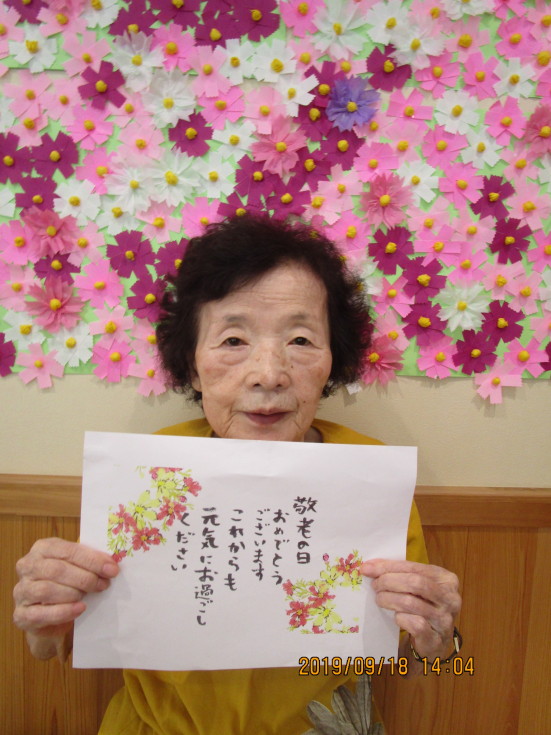 敬老の日
おめでとう
ございます
これからも
元気にお過ごし
ください
2019/09/18 14:04